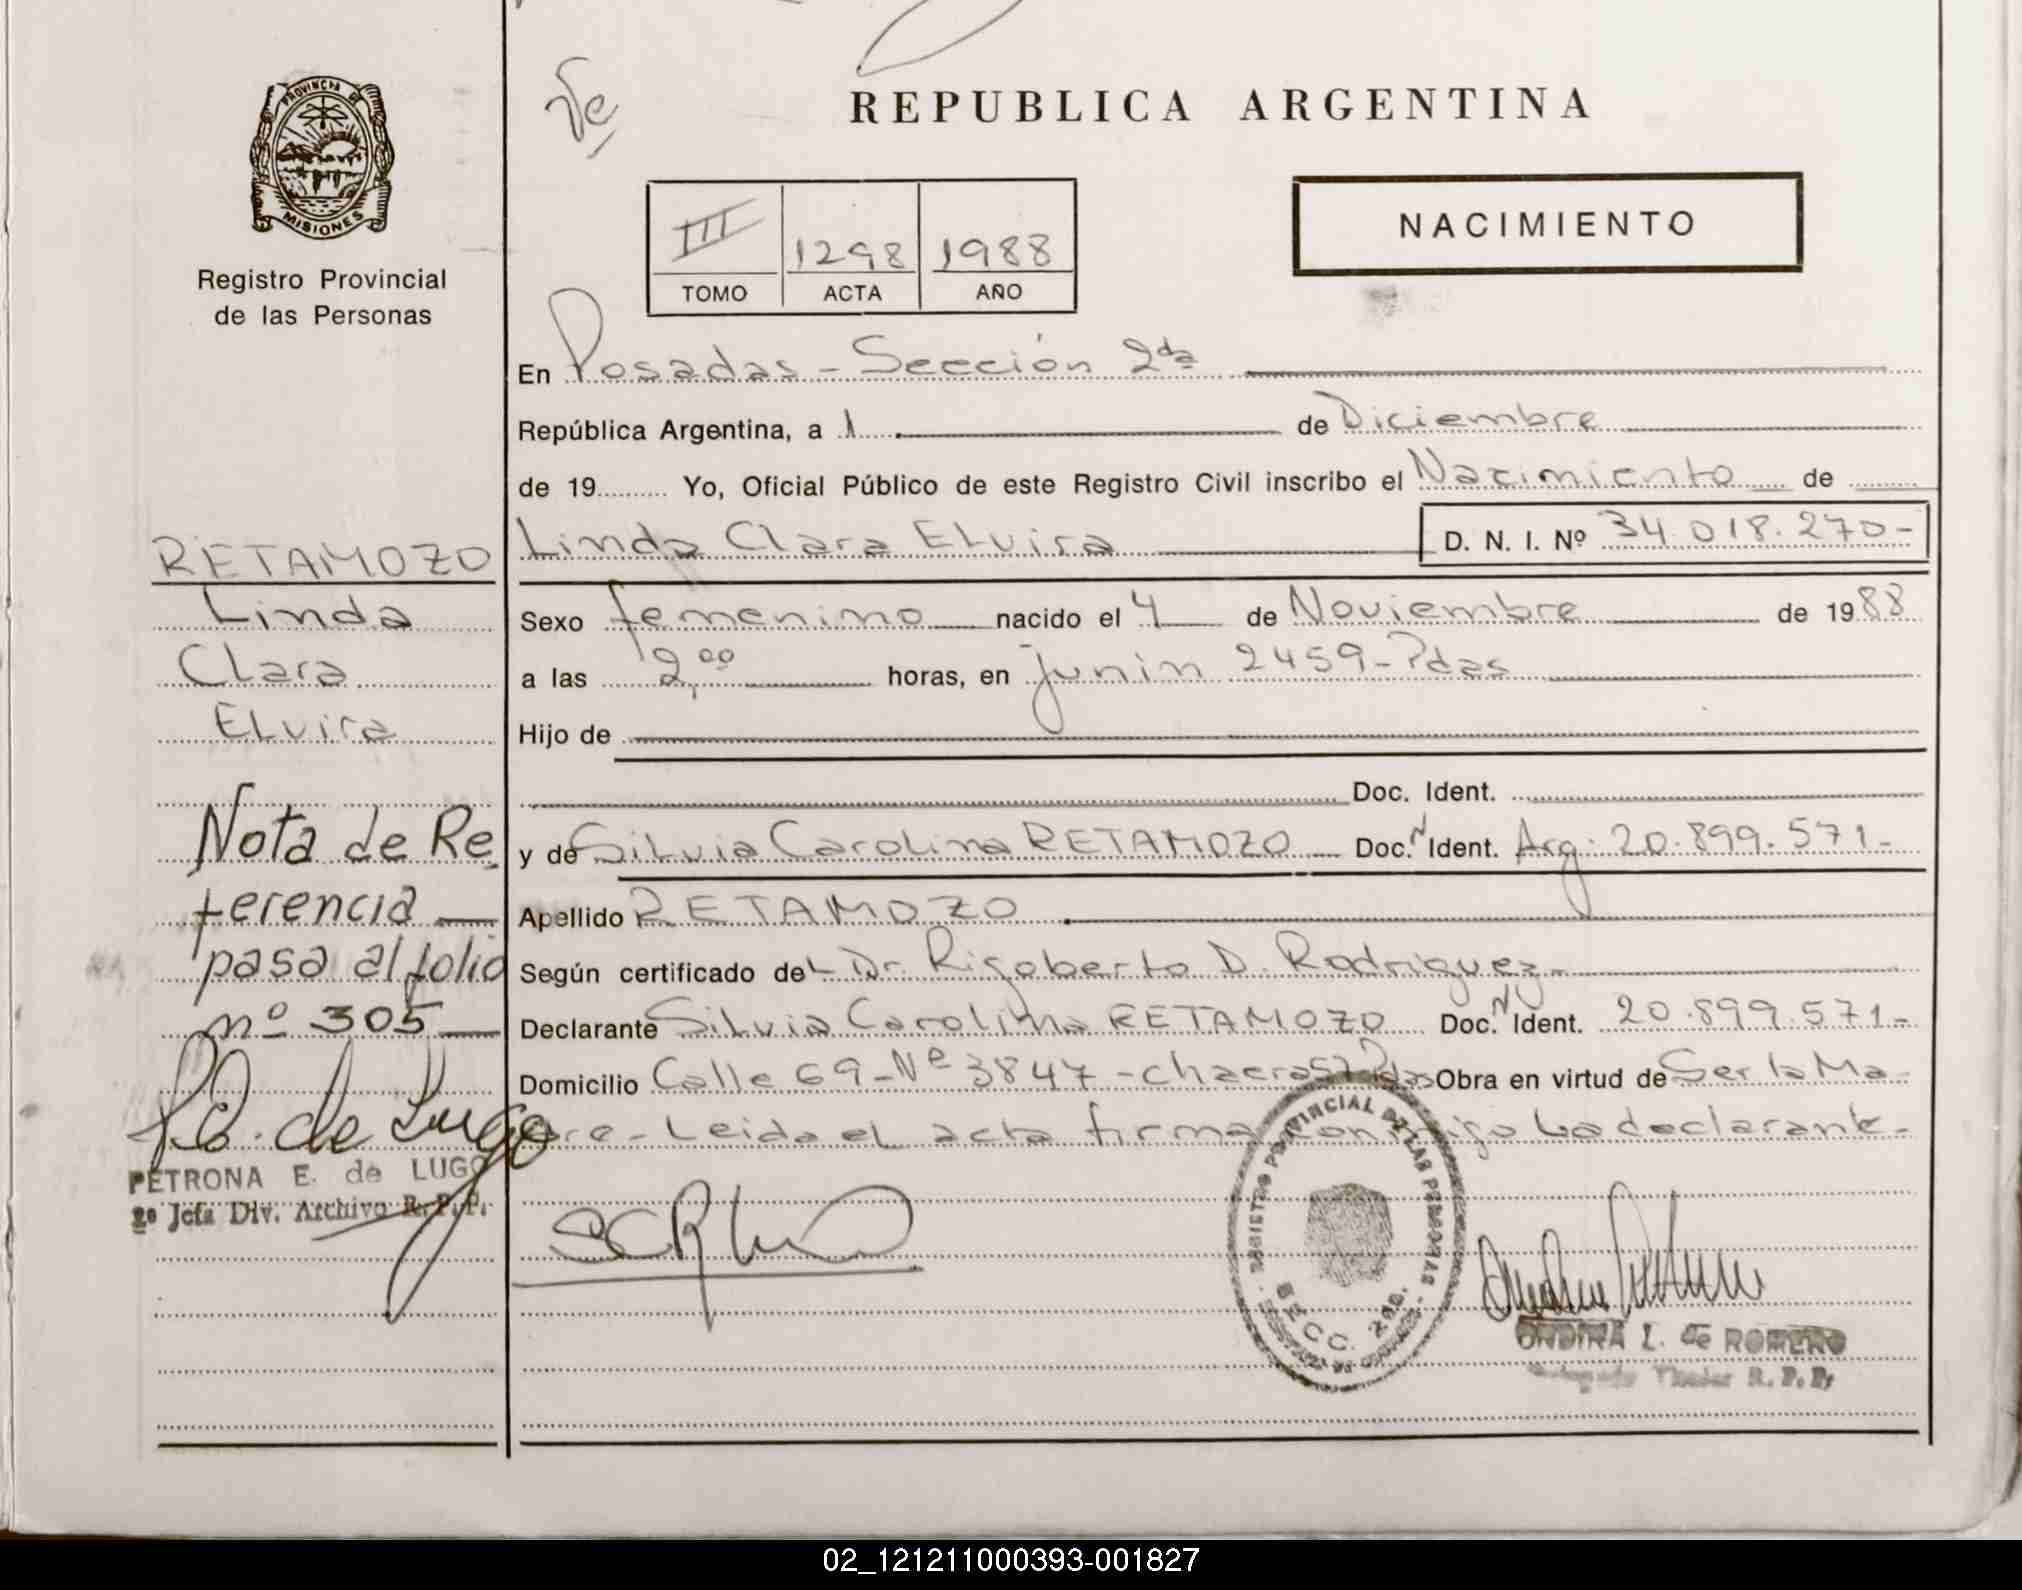 PROVINCIA DE
MISIONES
Registro Provincial
de las Personas
RETAMOZO
Linda
Clara
Elvira
Nota de Re
ferencia
pasa al folio
nº 305
P.E. de Lugo
PETRONA E. de LUGO
2º Jefa Div. Archivo R.P.P.
REPUBLICA ARGENTINA
III 1298 1988
TOMO ACTA AÑO
NACIMIENTO
En Posadas - Sección 2da
República Argentina, a 1 de Diciembre
de 19 Yo, Oficial Público de este Registro Civil inscribo el Nacimiento de
Linda Clara Elvira D. N. I. Nº 34.018.270-
Sexo femenino nacido el 4 de Noviembre de 1988
a las 2,00 horas, en Junin 2459-Pdas
Hijo de
Doc. Ident.
y de Silvia Carolina RETAMOZO Doc. N Ident. Arg: 20.899.571-
Apellido RETAMOZO
Según certificado del Dr. Rigoberto D. Rodriguez-
Declarante Silvia Carolina RETAMOZO Doc. N Ident. 20.899.571-
Domicilio Calle 69-Nº 3847-chacra 57 Pdas Obra en virtud de Ser la Ma-
dre- Leida el acta firma conmigo la declarante-
REGISTRO PROVINCIAL DE LAS PERSONAS
SECC. 2da.
ONDINA L. de ROMERO
Titular R. P. P.
02_121211000393-001827